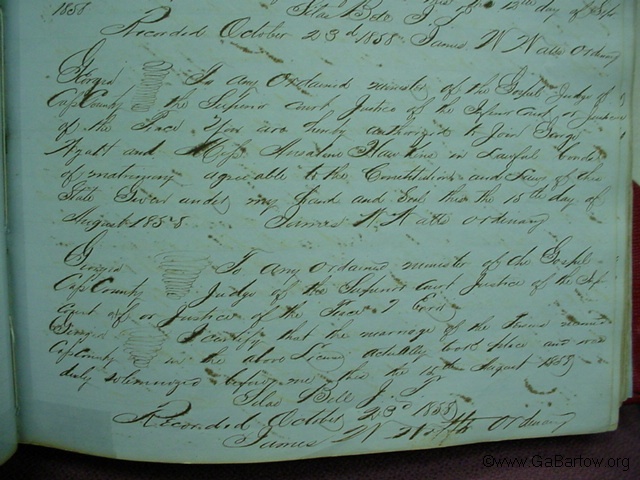 1858 Silas Bell J. P. 12th day of Sept
Recorded October 23d 1858 James W Watts Ordinary
Georgia To any Ordained minister of the Gospel Judge of
Cass County the Superior court Justice of the Inferior Court or Justice
of the Peace You are hereby authorized to Join
Wyatt and Miss Hawkins in Lawful bonds
of matrimony agreeable to the Constitution and Laws of this
State Given under my hand and Seal this the 15th day of
August 1858 James W Watts Ordinary
Georgia To any Ordained minister of the Gospel
Cass County Judge of the Superior court Justice of the Inf
Court of or Justice of the Peace
Georgia I certify that the marriage of the Persons named
Cass County in the above License actually took place and was
duly solemnized before me this the August 1858
Silas Bell J. P.
Recorded October 23d 1858
James W Watts Ordinary
©www.GaBartow.org